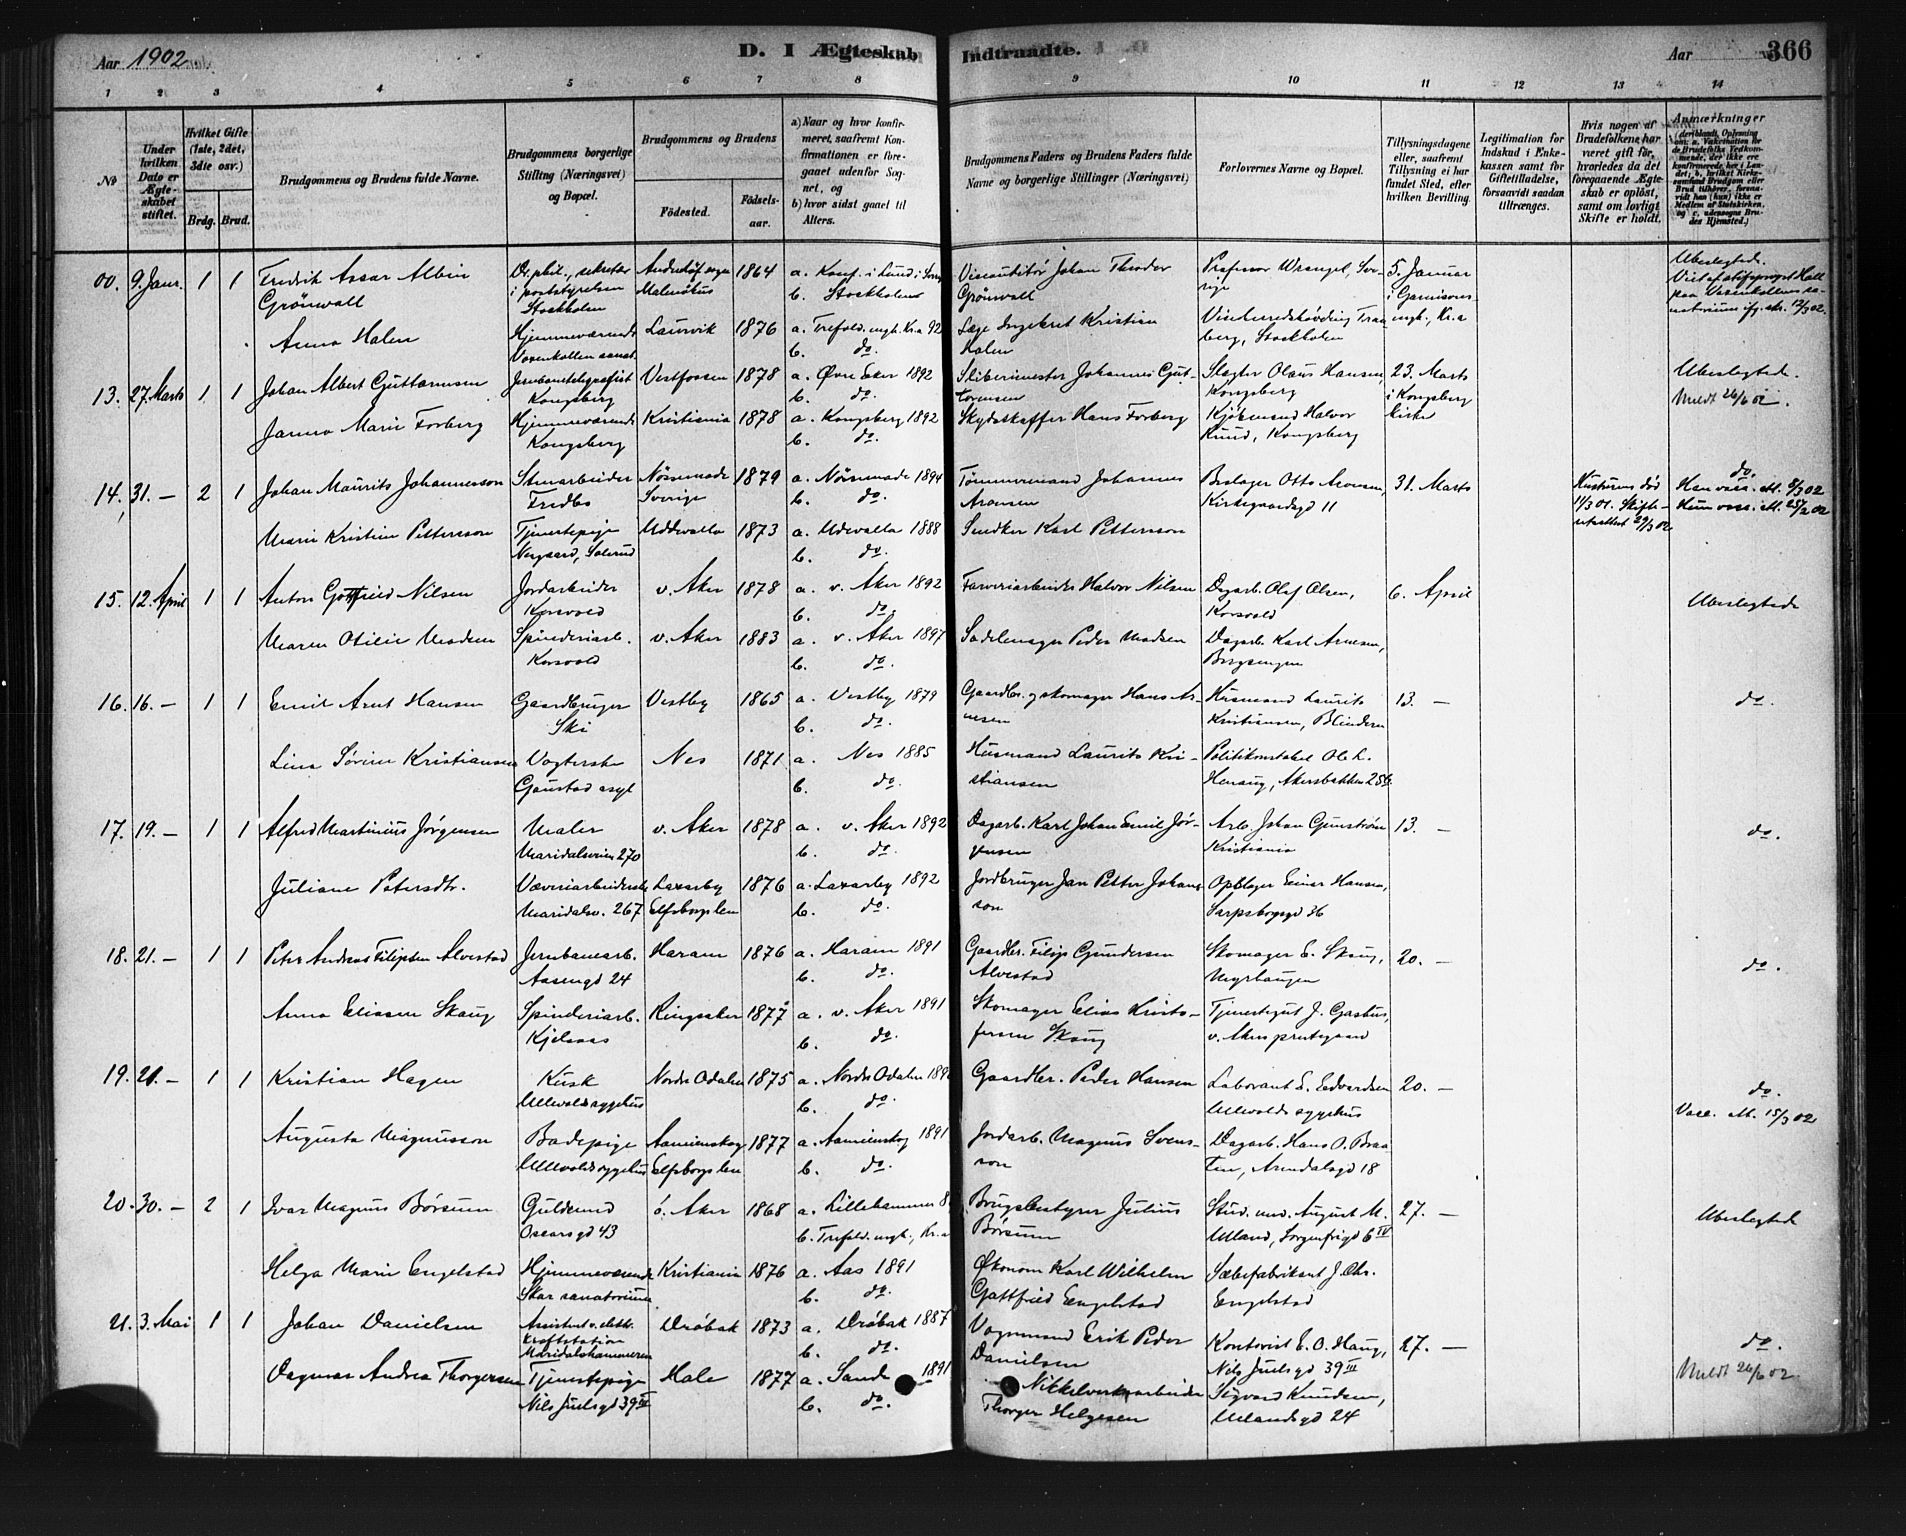 Aar 1902
D. I Ægteskab Indtraadte.
Aar
366
1 2 3 4 5 6 7 8 9 10 11 12 13 14
No
Under hvilken Dato er Ægteskabet stiftet.
Hvilket Gifte (1ste, 2det, 3die osv.)
Brdg. Brud.
Brudgommens og Brudens fulde Navne.
Brudgommens borgerlige Stilling (Næringsvei) og Bopæl.
Brudgommens og Brudens
Fødested. Fødselsaar.
a) Naar og hvor konfirmeret, saafremt Konfirmationen er foregaaet udenfor Sognet, og
b) hvor sidst gaaet til Alters.
Brudgommens Faders og Brudens Faders fulde Navne og borgerlige Stillinger (Næringsvei)
Forlovernes Navne og Bopæl.
Tillysningsdagene eller, saafremt Tillysning ei har fundet Sted, efter hvilken Bevilling.
Legitimation for Indskud i Enkekassen samt for Giftetilladelse, forsaavidt saadan tiltrænges.
Hvis nogen af Brudefolkene har været gift før, hvorledes da det foregaaende Ægteskab er opløst, samt om lovligt Skifte er holdt.
Anmærkninger
00. 9 Janr. 1 1 Fredrik Assar Albin Grönwall Dr. phil., sekretær i poststyrelsen Stockholm Malmöhus 1864 a. Konf. i Lund i Sverig b. Stockholm Johan Theodor Grönwall Professor Wrangel, Sverige 5. Januar i Garnisonsmgh., Kr.a Ubeslegtede.
Anna Halen Hjemmeværende Voxenkollen sanat. Laurvik 1876 a. Trefold. mgh. Kr.a 92 b. do. Læge Ingebret Kristian Halen Stockholm
13. 27 Marts 1 1 Johan Albert Guttormsen Jernbanetelegrafist Kongsberg Vestfossen 1878 a. Øvre Eker 1892 b. do. Sliberimester Johannes Guttormsen Slagter Olaus Hansen, Kongsberg 23. Marts i Kongsberg kirke Ubeslegtede. Meldt 26/6 02.
Janna Marie Forberg Hjemmeværende Kongsberg Kristiania 1878 a. Kongsberg 1892 b. do. Skydsskaffer Hans Forberg Kjøbmand Halvor Ruud, Kongsberg
14. 31. — 2 1 Johan Maurits Johannesson Stenarbeider Fredbo Sverige 1879 a. 1894 b. do. Tømmermand Johannes Aronsen Beslager Otto Aronsen, Kirkegaardsgd 11 31. Marts Hustruen død 11/3 01. do. Han vacc. Hun vacc.
Marie Kristine Pettersson Tjenestepige Uddevalla 1873 a. Udevalla 1888 b. do. Snedker Karl Pettersson
15. 12. April 1 1 Anton Gottfried Nilsen Jordarbeider Korsvold v. Aker 1878 a. v. Aker 1892 b. do. Farveriarbeider Halvor Nilsen Dagarb. Olaf Olsen, Korsvold 6. April Ubeslegtede
Maren Otilie Madsen Spinderiarb. Korsvold v. Aker 1883 a. v. Aker 1897 b. do. Sadelmager Peder Madsen Dagarb. Karl Arnesen, Bergsengen
16. 16. — 1 1 Emil Arnt Hansen Gaardbruger Ski Vestby 1865 a. Vestby 1879 b. do. Gaardbr. og skomager Hans Arnesen Husmand Laurits Kristiansen, Blindern 13. — do.
Lina Sørine Kristiansen Vogterske Gaustad asyl Nes 1871 a. Nes 1885 b. do. Husmand Laurits Kristiansen Politikonstabel Ole L. Akersbakken 25
17. 19. — 1 1 Alfred Martinius Jørgensen Maler Maridalsveien 270 v. Aker 1878 a. v. Aker 1892 b. do. Dagarb. Karl Johan Emil Jørgensen Arb. Johan Gunstrøm Kristiania 13. — do.
Juliane Petersdtr. Væveriarbeiderske Maridalsv. 267 Laxarby Elfsborgs len 1876 a. Laxarby 1892 b. do. Jordbruger Jan Petter Johansson Opsbager Einar Hansen, Sarpsborggd 36
18. 21. — 1 1 Peter Andreas Filipsen Alvestad Jernbanearb. Aasengd 24 Haram 1876 a. Haram 1891 b. do. Gaardbr. Filip Gundersen Alvestad Skomager E. Skaug, Myrhaugen 20. — do.
Anna Eliasen Skaug Spinderiarb. Kjelsaas Ringsaker 1877 a. v. Aker 1891 b. do. Skomager Elias Kristofersen Skaug Tjenestegut J. v. Aker prestegaard
19. 21. — 1 1 Kristian Hagen Kusk Ullevold sygehus Nordre Odalen 1875 a. Nordre Odalen b. do. Gaardbr. Peder Hansen Laborant E. Edvardsen Ullevolds sygehus 20. — do. Vacc. M. 15/3 02
Augusta Magnusson Badepige Ullevold sygehus Elfsborgs len 1877 a. 1891 b. do. Jordarb. Magnus Svensson Dagarb. Hans O. Braaten, Arendalsgd 18
20. 30. — 2 1 Ivar Magnus Børsum Guldsmed Oscarsgd 43 ø. Aker 1868 a. Lillehammer b. Trefold. mgh., Kr.a Brugsbestyrer Julius Børsum Stud. med. August M. Uland, Sorgenfrigd 6 IV 27. — Ubeslegtede
Helga Marie Engelstad Hjemmeværende Skar sanatorium Kristiania 1876 a. Aas 1891 b. do. Økonom Karl Wilhelm Gottfried Engelstad Sæbefabrikant J. Chr. Engelstad
21. 3. Mai 1 1 Johan Danielsen Assistent v. elektr. Kraftstation Maridalshammeren Drøbak 1873 a. Drøbak 1887 b. do. Vognmand Erik Peder Danielsen Kontorist E. O. Haug, Nils Juelsgd 39 III 27. — do. Meldt 26/6 02.
Dagmar Andrea Thorgersen Tjenestepige Nils Juelsgd 39 III Hole 1877 a. Sande 1891 b. do. Nikkelverksarbeider Thorger Helgesen Sigvard Knudsen, Ulandsgd 24